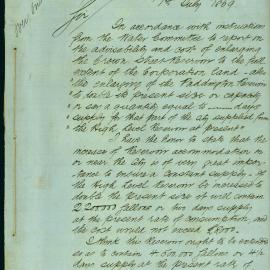 July 1869
for
In accordance with instruction
from the Water Committee to report on
the advisability and cost of enlarging
the Crown Street Reservoir to the full
extent of the Corporation Land - also
the enlarging of the Paddington Reservoir
to double its present size or capacity
or say a quantity equal to days
supply for that part of the city supplied from
the High Level Reservoir at present
I have the honor to state that the
increase of Reservoir accommodation in
or near the City is of very great impor-
tance to ensure a constant supply. If
the High Level Reservoir be increased to
double the present size it will contain
gallons or days supply
at the present rate of consumption, and
the cost would not exceed
I think this Reservoir ought to be extended
so as to contain gallons or 4½
days supply at the present rate of